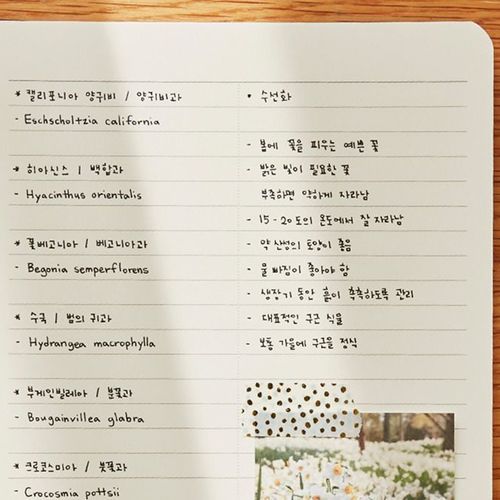 * 캘리포니아 양귀비 / 양귀비과
- Eschscholtzia california
* 히아신스 / 백합과
- Hyacinthus orientalis
* 꽃베고니아 / 베고니아과
- Begonia semperflorens
* 수국 / 범의 귀과
- Hydrangea macrophylla
* 부게인빌레아 / 분꽃과
- Bougainvillea glabra
* 크로코스미아 / 붓꽃과
- Crocosmia pottsii
• 수선화
- 봄에 꽃을 피우는 예쁜 꽃
- 밝은 빛이 필요한 꽃
부족하면 약하게 자라남
- 15-20도의 온도에서 잘 자라남
- 약산성의 토양이 좋음
- 물 빠짐이 좋아야 함
- 생장기 동안 흙이 촉촉하도록 관리
- 대표적인 구근 식물
- 보통 가을에 구근을 정식